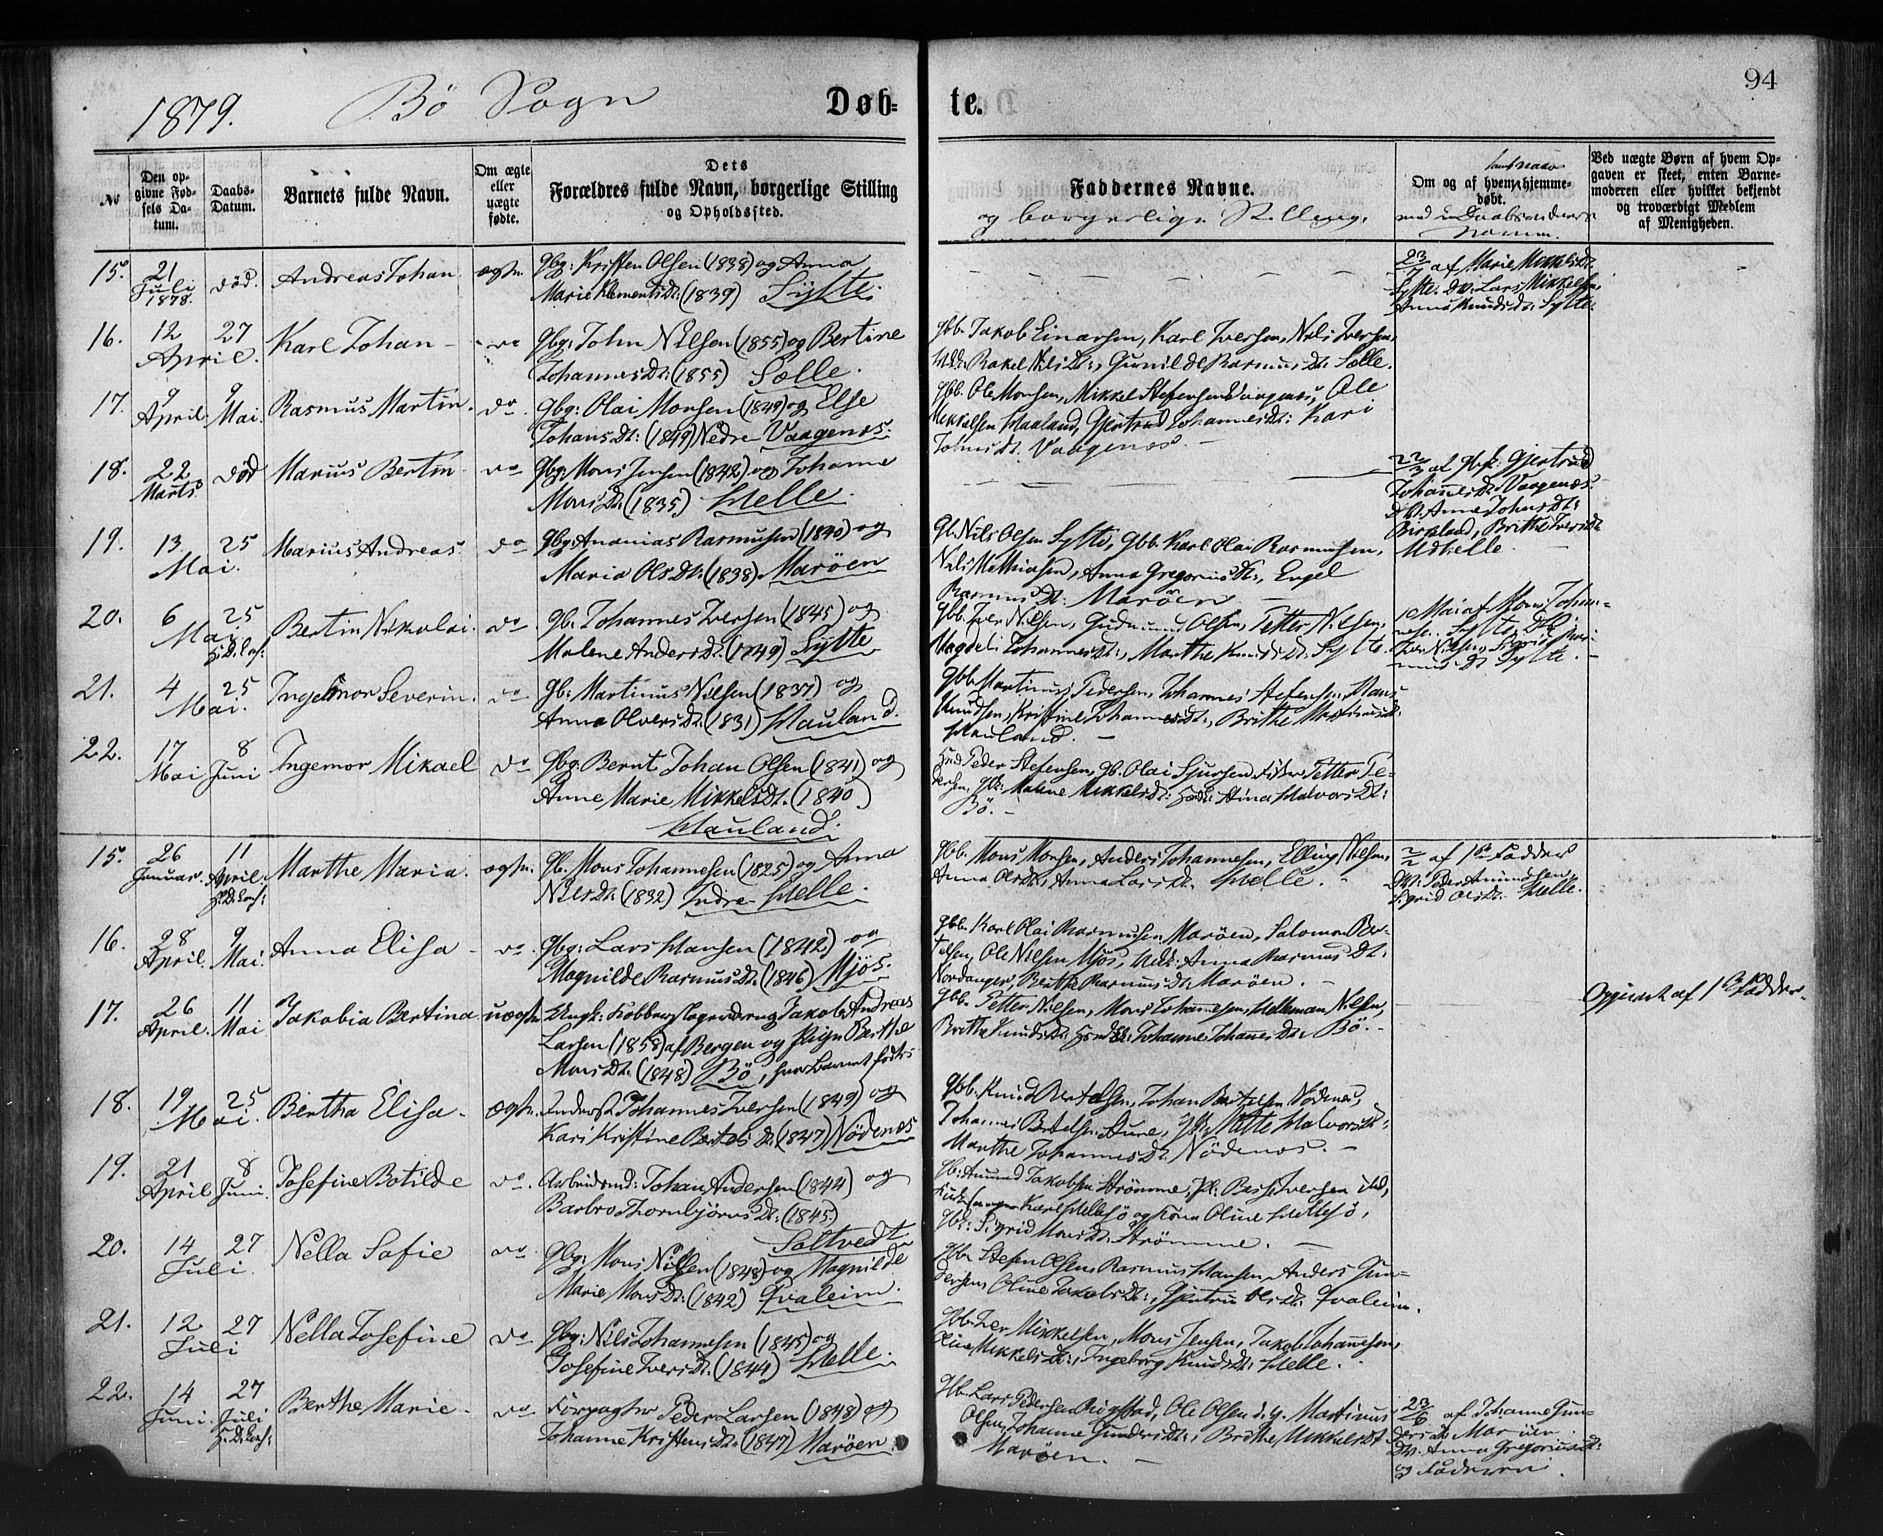 94
1879. Bö Sogn Døb= te.
№
Den op-
givne Fød-
sels Da-
tum.
Daabs-
Datum.
Barnets fulde Navn.
Om ægte
eller
uægte
fødte.
Dets
Forældres fulde Navn, borgerlige Stilling
og Opholdssted.
Faddernes Navne.
og borgerlige Stilling.
Om og af hvem hjemme-
døbt.
Ved uægte Børn af hvem Op-
gaven er skeet, enten Barne-
moderen eller hvilket bekjendt
og troværdigt Medlem
af Menigheden.
15. 21 Juli 1878. død. Andreas Johan ægte. Gbg: Kristen Olsen (1838) og Anna
Marie Klements Dt: (1839) Sylte.
23/7 af Marie Mikkels Dt.
Sylte. DV. Lars Mikkelsen,
Anna Knuds Dt: Sylte.
16. 12 April. 27 Karl Johan - do Gbg: John Nilsen (1855) og Bertine
Johannes Dt: (1855) Sælle.
Gbb. Jakob Einarsen, Karl Iversen, Nils Iversen,
Rakel Nils Dt:, Gunild Rasmus Dt: Sælle.
17. 9 April 9 Mai. Rasmus Martin. do. Gbg: Olai Monsen (1849) og Else
Johans Dt: (1849) Nedre Vaagenæs.
Gbb. Ole Monsen, Mikkel Stefensen Vaagenæs, Ole
Mikkelsen Hauland, Gjertrud Johannes Dt: Kari
Vaagenæs. -
18. 22 Marts. død Marius Bertin do Gbg: Mons Jensen (1842) og Johanne
Mons Dt: (1835) Helle.
22/3 af Gbk. Gjertrud
Johannes Dt. Vaagenæs.
DV. Anne Johns Dt:
Birkeland, Brithe Ivers Dt
19. 13. Mai. 25 Marius Andreas do Gbg: Ananias Rasmusen (1840) og
Maria Ols Dt: (1838) Marøen
Gb. Nils Olsen Sylte, Gbb. Karl Olai Rasmusen,
Nils Mathiasen, Anna Gregorius Dt:, Engel
Rasmus Dt: Marøen -
20. 6 Mai 25 Bertin Nikolai. do. Gb. Johannes Iversen (1845) og
Malene Anders Dt: (1849) Sylte
Gbb. Iver Nilsen, Gudmund Olsen, Petter Nilsen,
Magdeli Johannes Dt:, Marthe Knuds Dt: Sylte.
21. 4 Mai. 25 Ingelmor Severin. do Gb: Martinus Nilsen (1837) og
Anna Olvers Dt: (1831) Hauland.
Gbb. Martinus Pedersen, Johannes Stefensen, Hans
Knudsen, Kristine Johannes Dt:, Brithe Martinus Dt:
Hauland. -
22. 17 Mai 8 Juni Ingemor Mikael do Gbg: Bernt Johan Olsen (1841) og
Anne Marie Mikkels Dt. (1840)
Hauland.
Peder Stefensen, Gb. Olai Sjursen, Petter Pe-
dersen, Malene Mikkels Dt: Stina Halvors Dt:
Bö. -
15. 26 Januar. 11 April. Marthe Maria. ægte. Gb. Mons Johannesen (1825) og Anna
Nils Dt: (1832) Indre Helle.
Gbb. Mons Monsen, Anders Johannesen, Elling Nilsen,
Anna Ols Dt:, Anna Lars Dt. Helle.
2/2 af 1ste Fadder
DV: Peder Amundsen,
Sigrid Ols Dt. Helle.
16. 28 April. 9 Mai. Anna Elisa - do. Gbg: Lars Hansen (1842) og
Magnilde Rasmus Dt: (1846) Mjøs.
Gbb. Karl Olai Rasmusen Marøen, Salomon Ber-
telsen, Ole Nilsen Mjøs, Anna Rasmus Dt:
Nordanger, Brithe Rasmus Dt: Marøen. -
17. 26 April. 11 Mai Jakobia Bertina uægte. Ungk: Kobberslagersvend Jakob Andreas
Larsen (1858) af Bergen og Pigen Berthe
Mons Dt. (1848) Bö, hvor Barnet fødtes
Gbb. Petter Nilsen, Mons Johannesen, Helleman Nilsen,
Brithe Knuds Dt: Johanne Johannes Dt. Bö. -
Opgivet af 1ste Fadder.
18. 19 Mai. 25 Bertha Elisa - ægte. Inderst Johannes Iversen (1849) og
Kari Kristine Bertels Dt. (1847) Nödenæs
Gbb. Knud Bertelsen, Johan Bertelsen Nödenæs,
Johannes Bertelsen Aune, Mette Halvors Dt:
Marthe Johannes Dt. Nödenæs. -
19. 21 April 8 Juni. Josefine Botilde do. Arbeidsmd: Johan Andersen (1844) og
Barbro Thornbjörns Dt: (1845)
Soltvedt
Gb: Amund Jakobsen Strömme,
Karl Hellesö og Kona Oline Hellesö,
Gbk: Sigrid Mons Dt: Strömme. -
20. 14 Juli 27 Nella Sofie do. Gbg: Mons Nilsen (1848) og Magnilde
Marie Mons Dt: (1842) Qvaleim.
Gbb. Stefen Olsen, Rasmus Hansen, Anders Gun-
dersen, Oline Jakobs Dt:, Gjertru Ols Dt: Qvaleim.
21. 12 Juli 27 Nella Josefine do. Gbg: Nils Johannesen (1845) og
Josefine Ivers Dt. (1844) Helle.
Gbb. Iver Mikkelsen, Mons Jensen, Jakob Johannesen,
Oline Mikkels Dt:, Ingeborg Knuds Dt: Helle.
22. 14 Juni. 27 Juli Berthe Marie - do. Forpagter Peder Larsen (1848) og
Johanne Kristens Dt. (1847) Marøen
Gbb. Lars Pedersen Rögstad, Ole Olsen d. y. Martinus
Olsen, Johanne Gunders Dt:, Brithe Mikkels Dt.
Marøen. -
23/6 af Johanne Gun-
ders Dt. Marøen.
DV. Anna Gregorius Dt:
og Faderen.